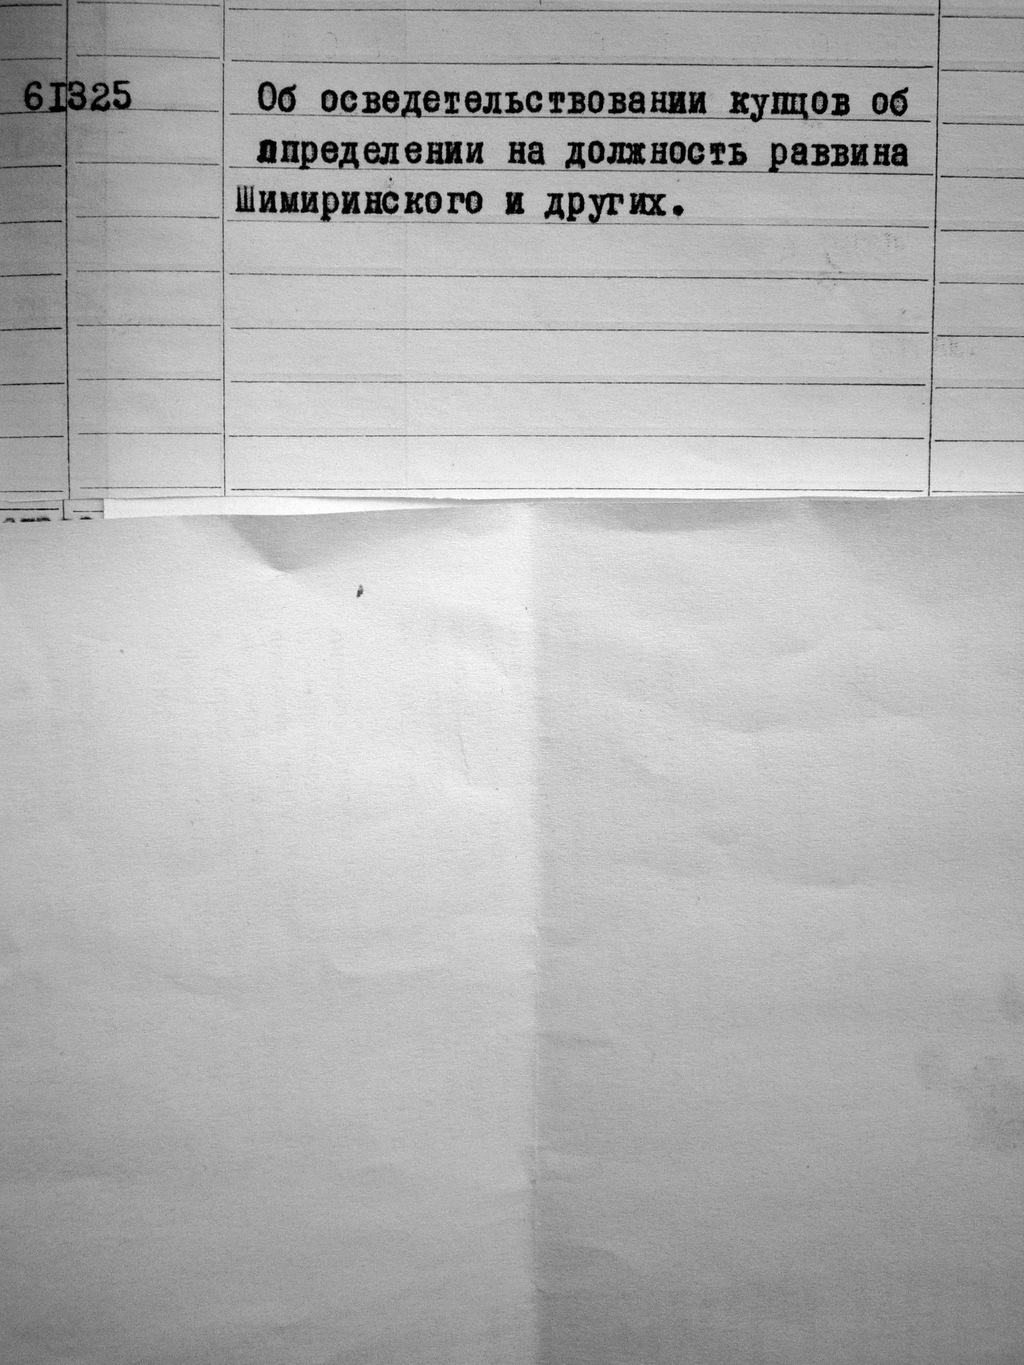 61325 Об осведетельствовании купцов об
ппределении на должность раввина
Шимиринского и других.